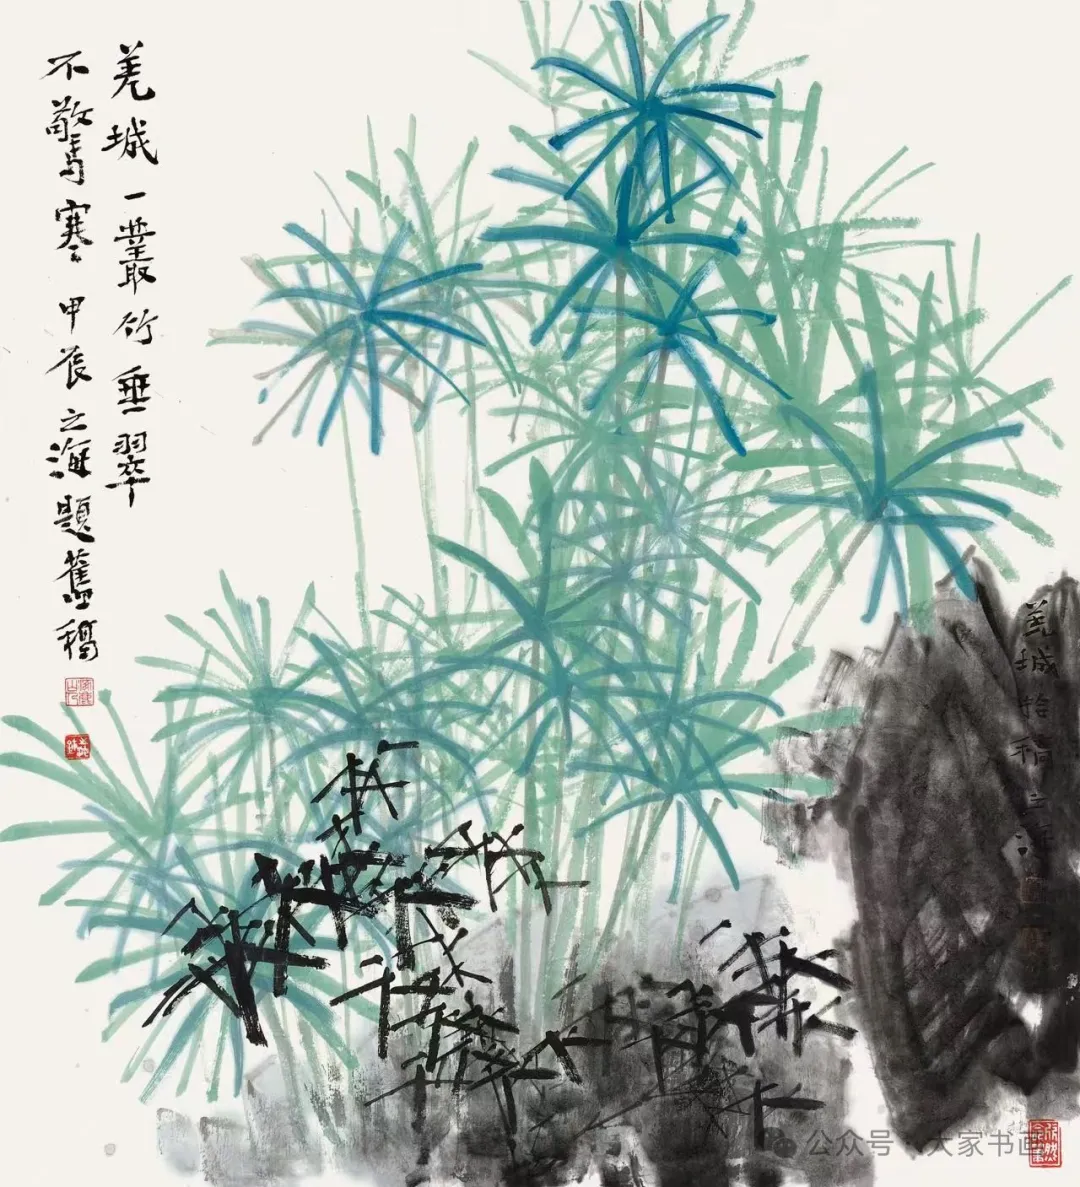 羌城一叢竹垂翠
不驚寒甲辰之海題舊稿
羌城拾稿之海
公众号·大家书画